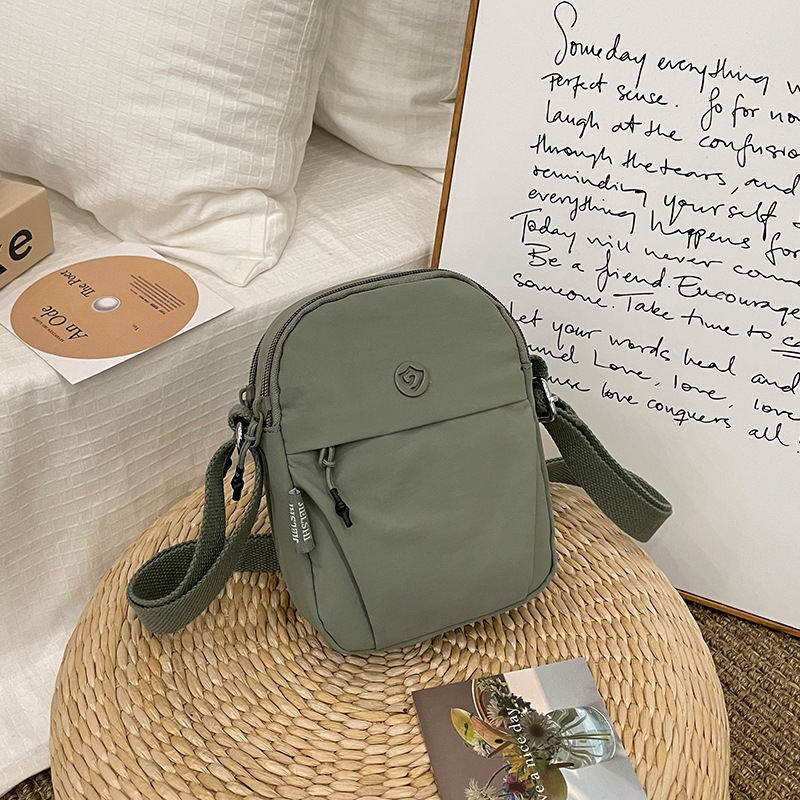 Someday everything
perfect sense. So for now
laugh at the confusio
through the tears, and
reminding yourself
everything happens for
Today will never come
Be a friend. Encourage
someone. Take time to ca
Let your words heal and
Love, love, love
love conquers all
An Ode
The Poet
e
a nice day